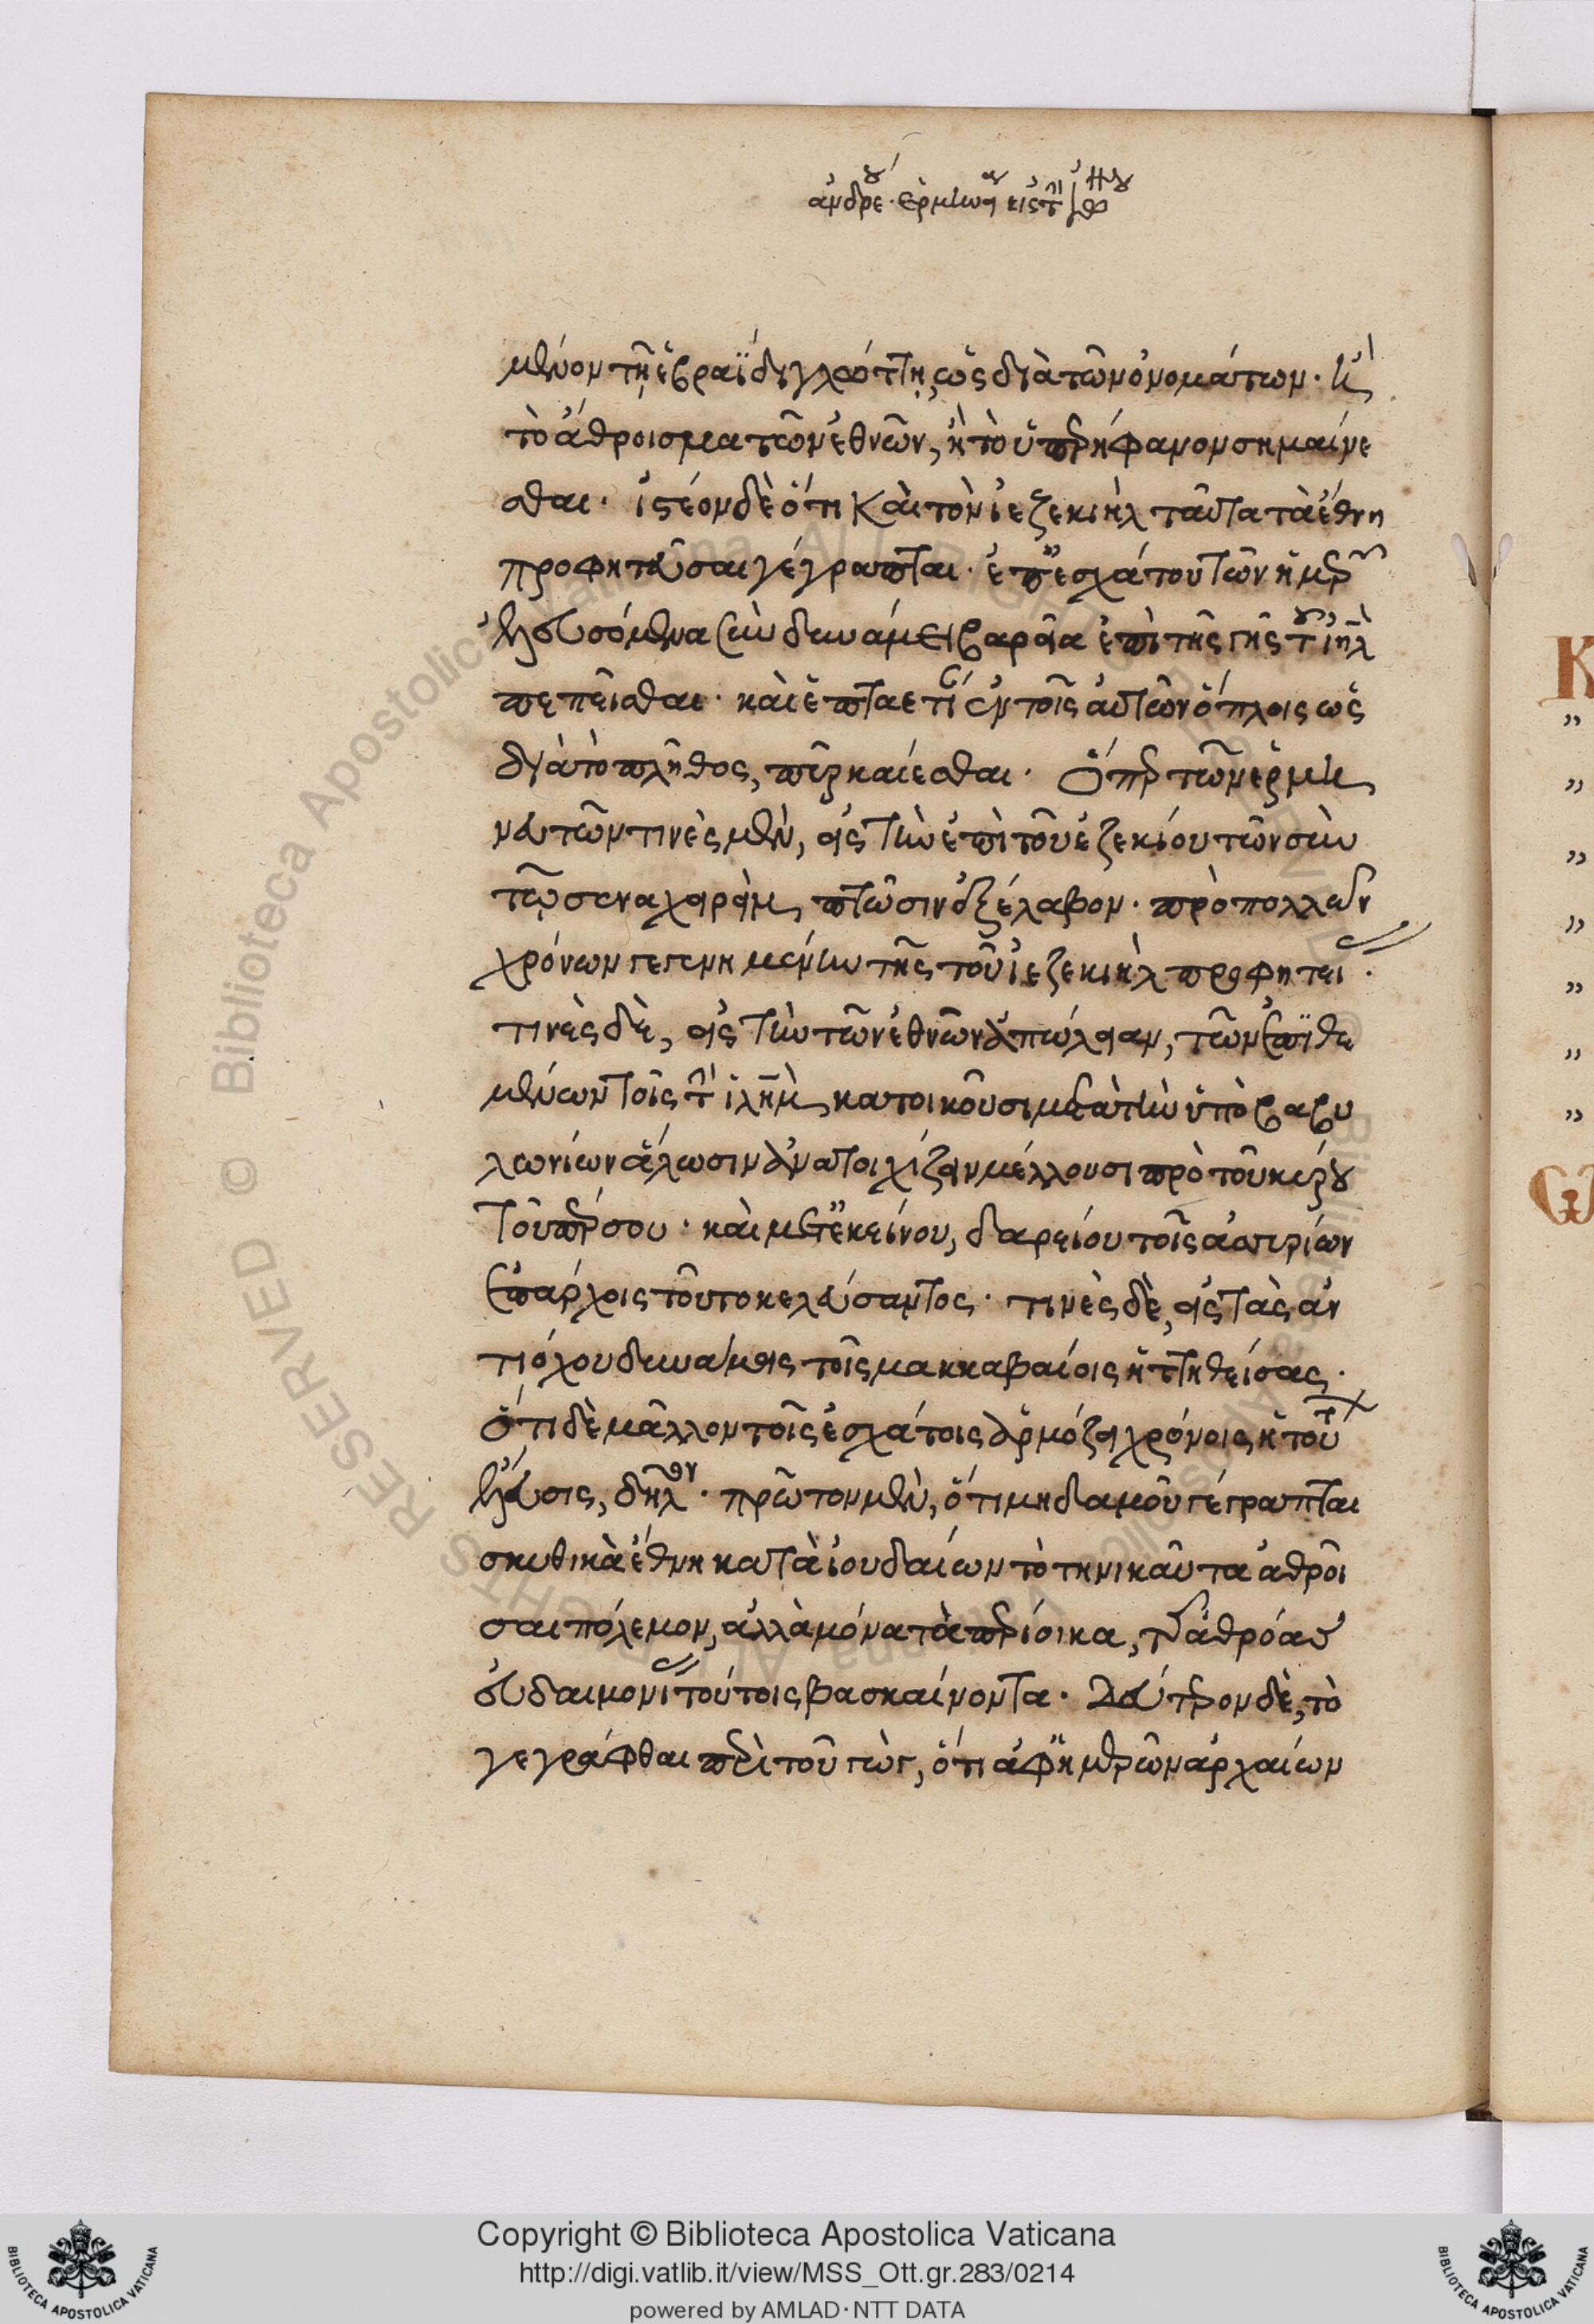 ἀνδρέου ἑρμην εἰς τ
μενον τῇ ἑβραΐδι γλώττῃ, ὡς διὰ τῶν ὀνομάτων· ἢ
τὸ ἄθροισμα τῶν ἐθνῶν, ἢ τὸ ὑπερήφανον σημαίνε
σθαι· ἰστέον δὲ ὅτι καὶ τὸν ἰεζεκιὴλ ταῦτα τὰ ἔθνη
προφητεῦσαι γέγραπται· ἐπ' ἐσχάτου τῶν ἡμερῶν
ἐλευσόμενα σὺν δυνάμει βαρεία ἐπὶ τῆς γῆς τοῦ ἰηλ
πεπεισθαι· καὶ ἑπταετίαν ἐν τοῖς αὐτῶν ὅπλοις ὡς
διὰ τὸ πλῆθος, πῦρ καίεσθαι· ὅπερ τῶν ἑρμη
νευτῶν τινὲς μὲν, εἰς τὴν ἐπὶ τοῦ ἐζεκίου τῶν σὺν
τῷ σεναχηρεὶμ πτῶσιν ἐξέλαβον· πρὸ πολλῶν
χρόνων γεγενημένην τῆς τοῦ ἰεζεκιὴλ προφητείας·
τινὲς δὲ, εἰς τὴν τῶν ἐθνῶν ἀπώλειαν, τῶν ἐπιθε
μένων τοῖς τὴν ἱλημ κατοικοῦσι μετὰ τὴν ὑπὸ βαβυ
λωνίων ἅλωσιν ἀνατοιχίζειν μέλλουσι πρὸ τοῦ κύρου
τοῦ πέρσου· καὶ μετ' ἐκείνου, δαρείου τοῖς ἀσσυρίων
ἐπάρχοις τοῦτο κελεύσαντος· τινὲς δὲ, εἰς τὰς ἀν
τιόχου δυνάμεις τοῖς μακκαβαίοις ἡττηθείσας·
ὅτι δὲ μᾶλλον τοῖς ἐσχάτοις ἁρμόζει χρόνοις ἡ τούτων
ἔλευσις, δῆλον· πρῶτον μὲν, ὅτι μηδαμοῦ γέγραπται
σκυθικὰ ἔθνη κατὰ ἰουδαίων τὸ τηνικαῦτα ἀθροῖ
σαι πόλεμον, ἀλλὰ μόνα τὰ περίοικα, τῇ ἀθρόα
εὐδαιμονία τούτοις βασκαίνοντα· δεύτερον δὲ, τὸ
γεγράφθαι περὶ τοῦ γὼγ, ὅτι ἀφ' ἡμερῶν ἀρχαίων
K
Copyright © Biblioteca Apostolica Vaticana
http://digi.vatlib.it/view/MSS_Ott.gr.283/0214
powered by AMLAD·NTT DATA